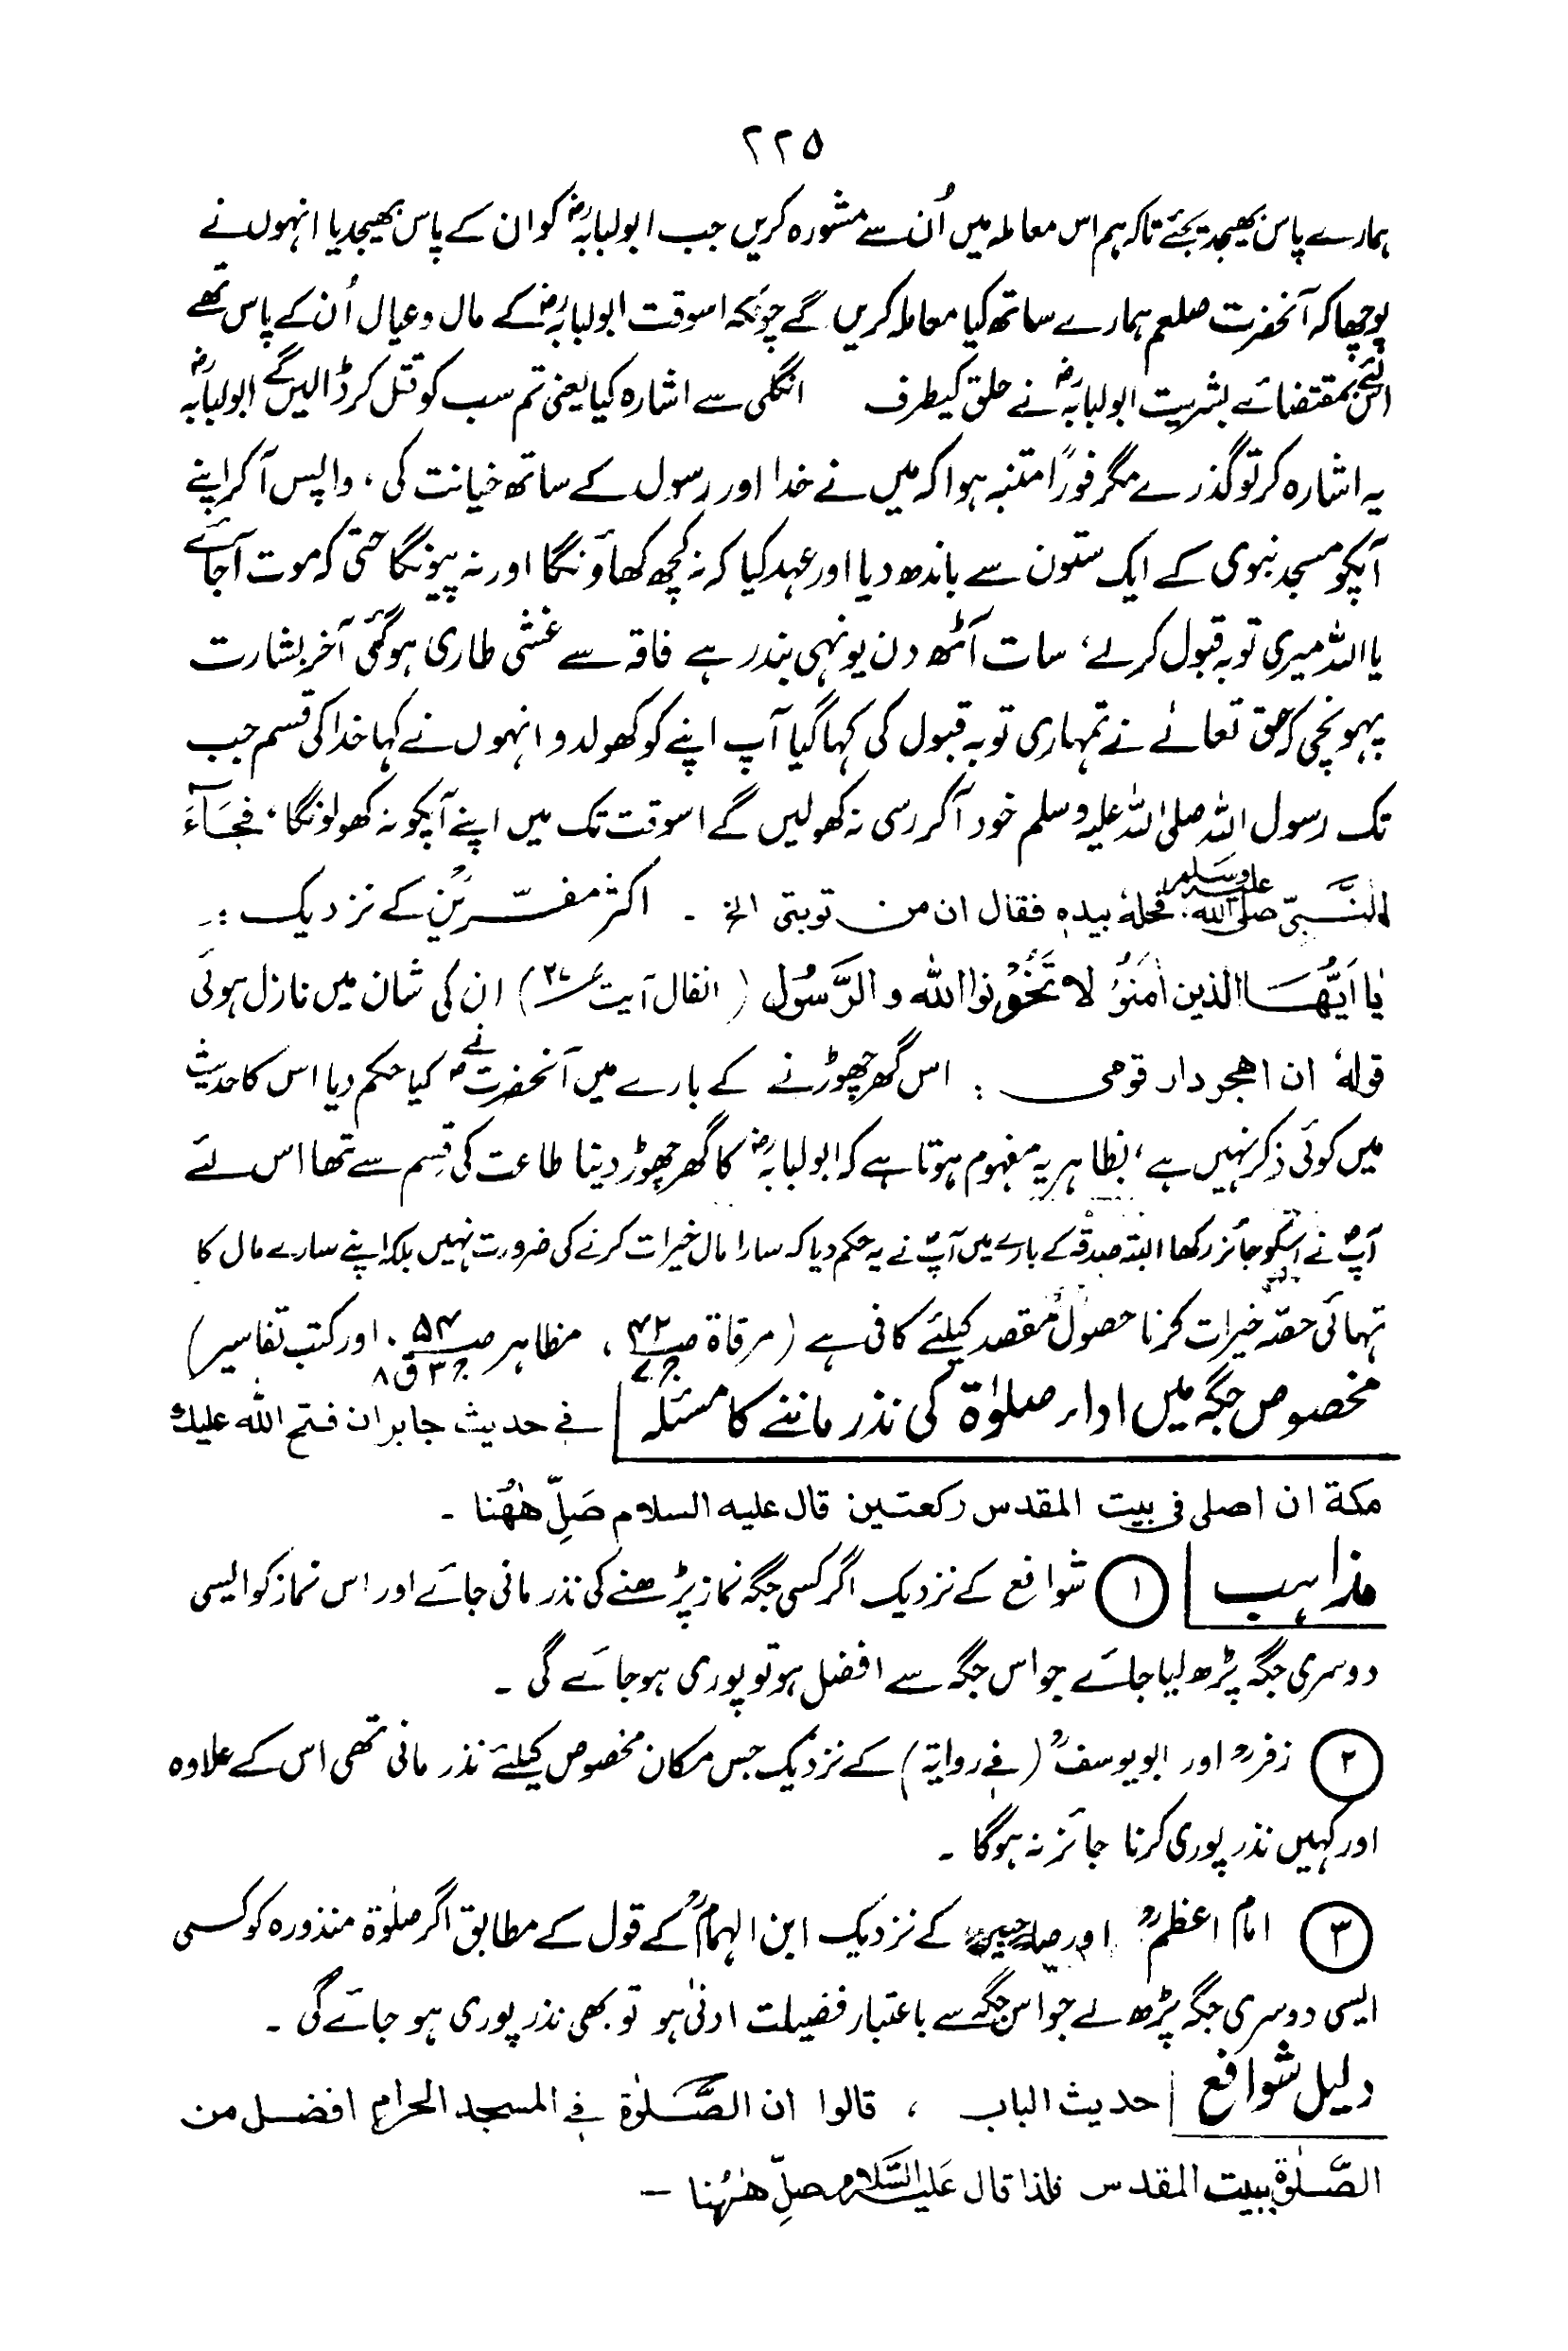 ۲۲۵
ہمارے پاس بھیجدیجئے تاکہ ہم اس معاملہ میں اُن سے مشورہ کریں جب ابولبابہؓ کو ان کے پاس بھیجدیا انہوں نے
پوچھا کہ آنحضرت صلعم ہمارے ساتھ کیا معاملہ کریں گے چونکہ اسوقت ابولبابہؓ کے مال و عیال اُن کے پاس تھے
اسلئے بمقتضائے بشریت ابولبابہؓ نے حلق کیطرف انگلی سے اشارہ کیا یعنی تم سب کو قتل کر ڈالیں گے ابولبابہؓ
یہ اشارہ کر تو گذرے مگر فوراً متنبہ ہوا کہ میں نے خدا اور رسول کے ساتھ خیانت کی، واپس آکر اپنے
آپکو مسجد نبوی کے ایک ستون سے باندھ دیا اور عہد کیا کہ نہ کچھ کھاؤنگا اور نہ پیونگا حتی کہ موت آجائے
یا اللہ میری توبہ قبول کرلے، سات آٹھ دن یونہی بندر ہے فاقہ سے غشی طاری ہوگئی آخر بشارت
پہونچی کہ حق تعالےٰ نے تمہاری توبہ قبول کی کہا گیا آپ اپنے کو کھولدو انہوں نے کہا خدا کی قسم جب
تک رسول اللہ صلی اللہ علیہ وسلم خود آکر رسی نہ کھولیں گے اسوقت تک میں اپنے آپکو نہ کھولونگا، فجَآءَ
النَّبیّ صلی اللہ علیہ وسلم فحلہٗ بیدہٖ فقال ان من توبتی الخ ۔ اکثر مفسّرینؒ کے نزدیک :۔
یٰا اَیُّھَا الذین اٰمَنُوْ لَا تَخُوْنُوا اللّٰہ و الرَّسُوْل ( انفال آیت ۲۷ ) ان کی شان میں نازل ہوئی
قولہٗ ان اھجر دار قومی : اس گھر چھوڑنے کے بارے میں آنحضرتؐ نے کیا حکم دیا اس کا حدیث
میں کوئی ذکر نہیں ہے، بظاہر یہ مفہوم ہوتا ہے کہ ابولبابہؓ کا گھر چھوڑ دینا طاعت کی قِسم سے تھا اس لئے
آپؐ نے اسکو جائز رکھا البتہ صدقہ کے بارے میں آپؐ نے یہ حکم دیا کہ سارا مال خیرات کرنے کی ضرورت نہیں بلکہ اپنے سارے مال کا
تہائی حصّہ خیرات کرنا حصولِ مقصد کیلئے کافی ہے ( مرقاۃ صـ۴۲ جـ۷ ، مظاہر صـ۵۴ جـ۳ ق۸ ۔ اور کتب تفاسیر )
مخصوص جگہ میں اداء صلوٰۃ کی نذر ماننے کا مسئلہ | فی حدیث جابر ان فتح اللہ علیك
مکة ان اصلی فی بیت المقدس رکعتین قال علیه السلام صَلِّ ھٰھُنا ۔
مذاہب | ① شوافع کے نزدیک اگر کسی جگہ نماز پڑھنے کی نذر مانی جائے اور اس نماز کو ایسی
دوسری جگہ پڑھ لیا جائے جو اس جگہ سے افضل ہو تو پوری ہو جائے گی ۔
② زفرؒ اور ابو یوسفؒ ( فی روایة ) کے نزدیک جس مکان مخصوص کیلئے نذر مانی تھی اس کے علاوہ
اور کہیں نذر پوری کرنا جائز نہ ہوگا ۔
③ امام اعظمؒ اور صاحبینؒ کے نزدیک ابن الہمامؒ کے قول کے مطابق اگر صلوٰۃ منذورہ کو کسی
ایسی دوسری جگہ پڑھ لے جو اس جگہ سے باعتبار فضیلت ادنیٰ ہو تو بھی نذر پوری ہو جائے گی ۔
دلیل شوافع | حدیث الباب ، قالوا ان الصَّلوٰة فی المسجد الحرام افضل من
الصَّلوٰة ببیت المقدس فلذا قال عَلیه السَّلام صلِّ ھٰھُنا —